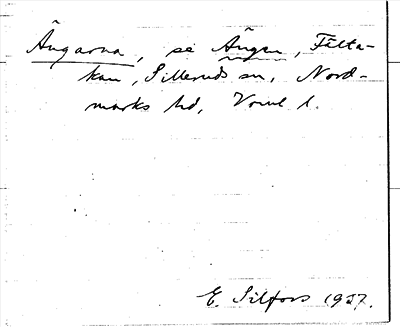 Ängarna, se Ängen, Fölta-
kan, Silleruds sn, Nord-
marks hd, Vrml l.
E. Silfors 1927.